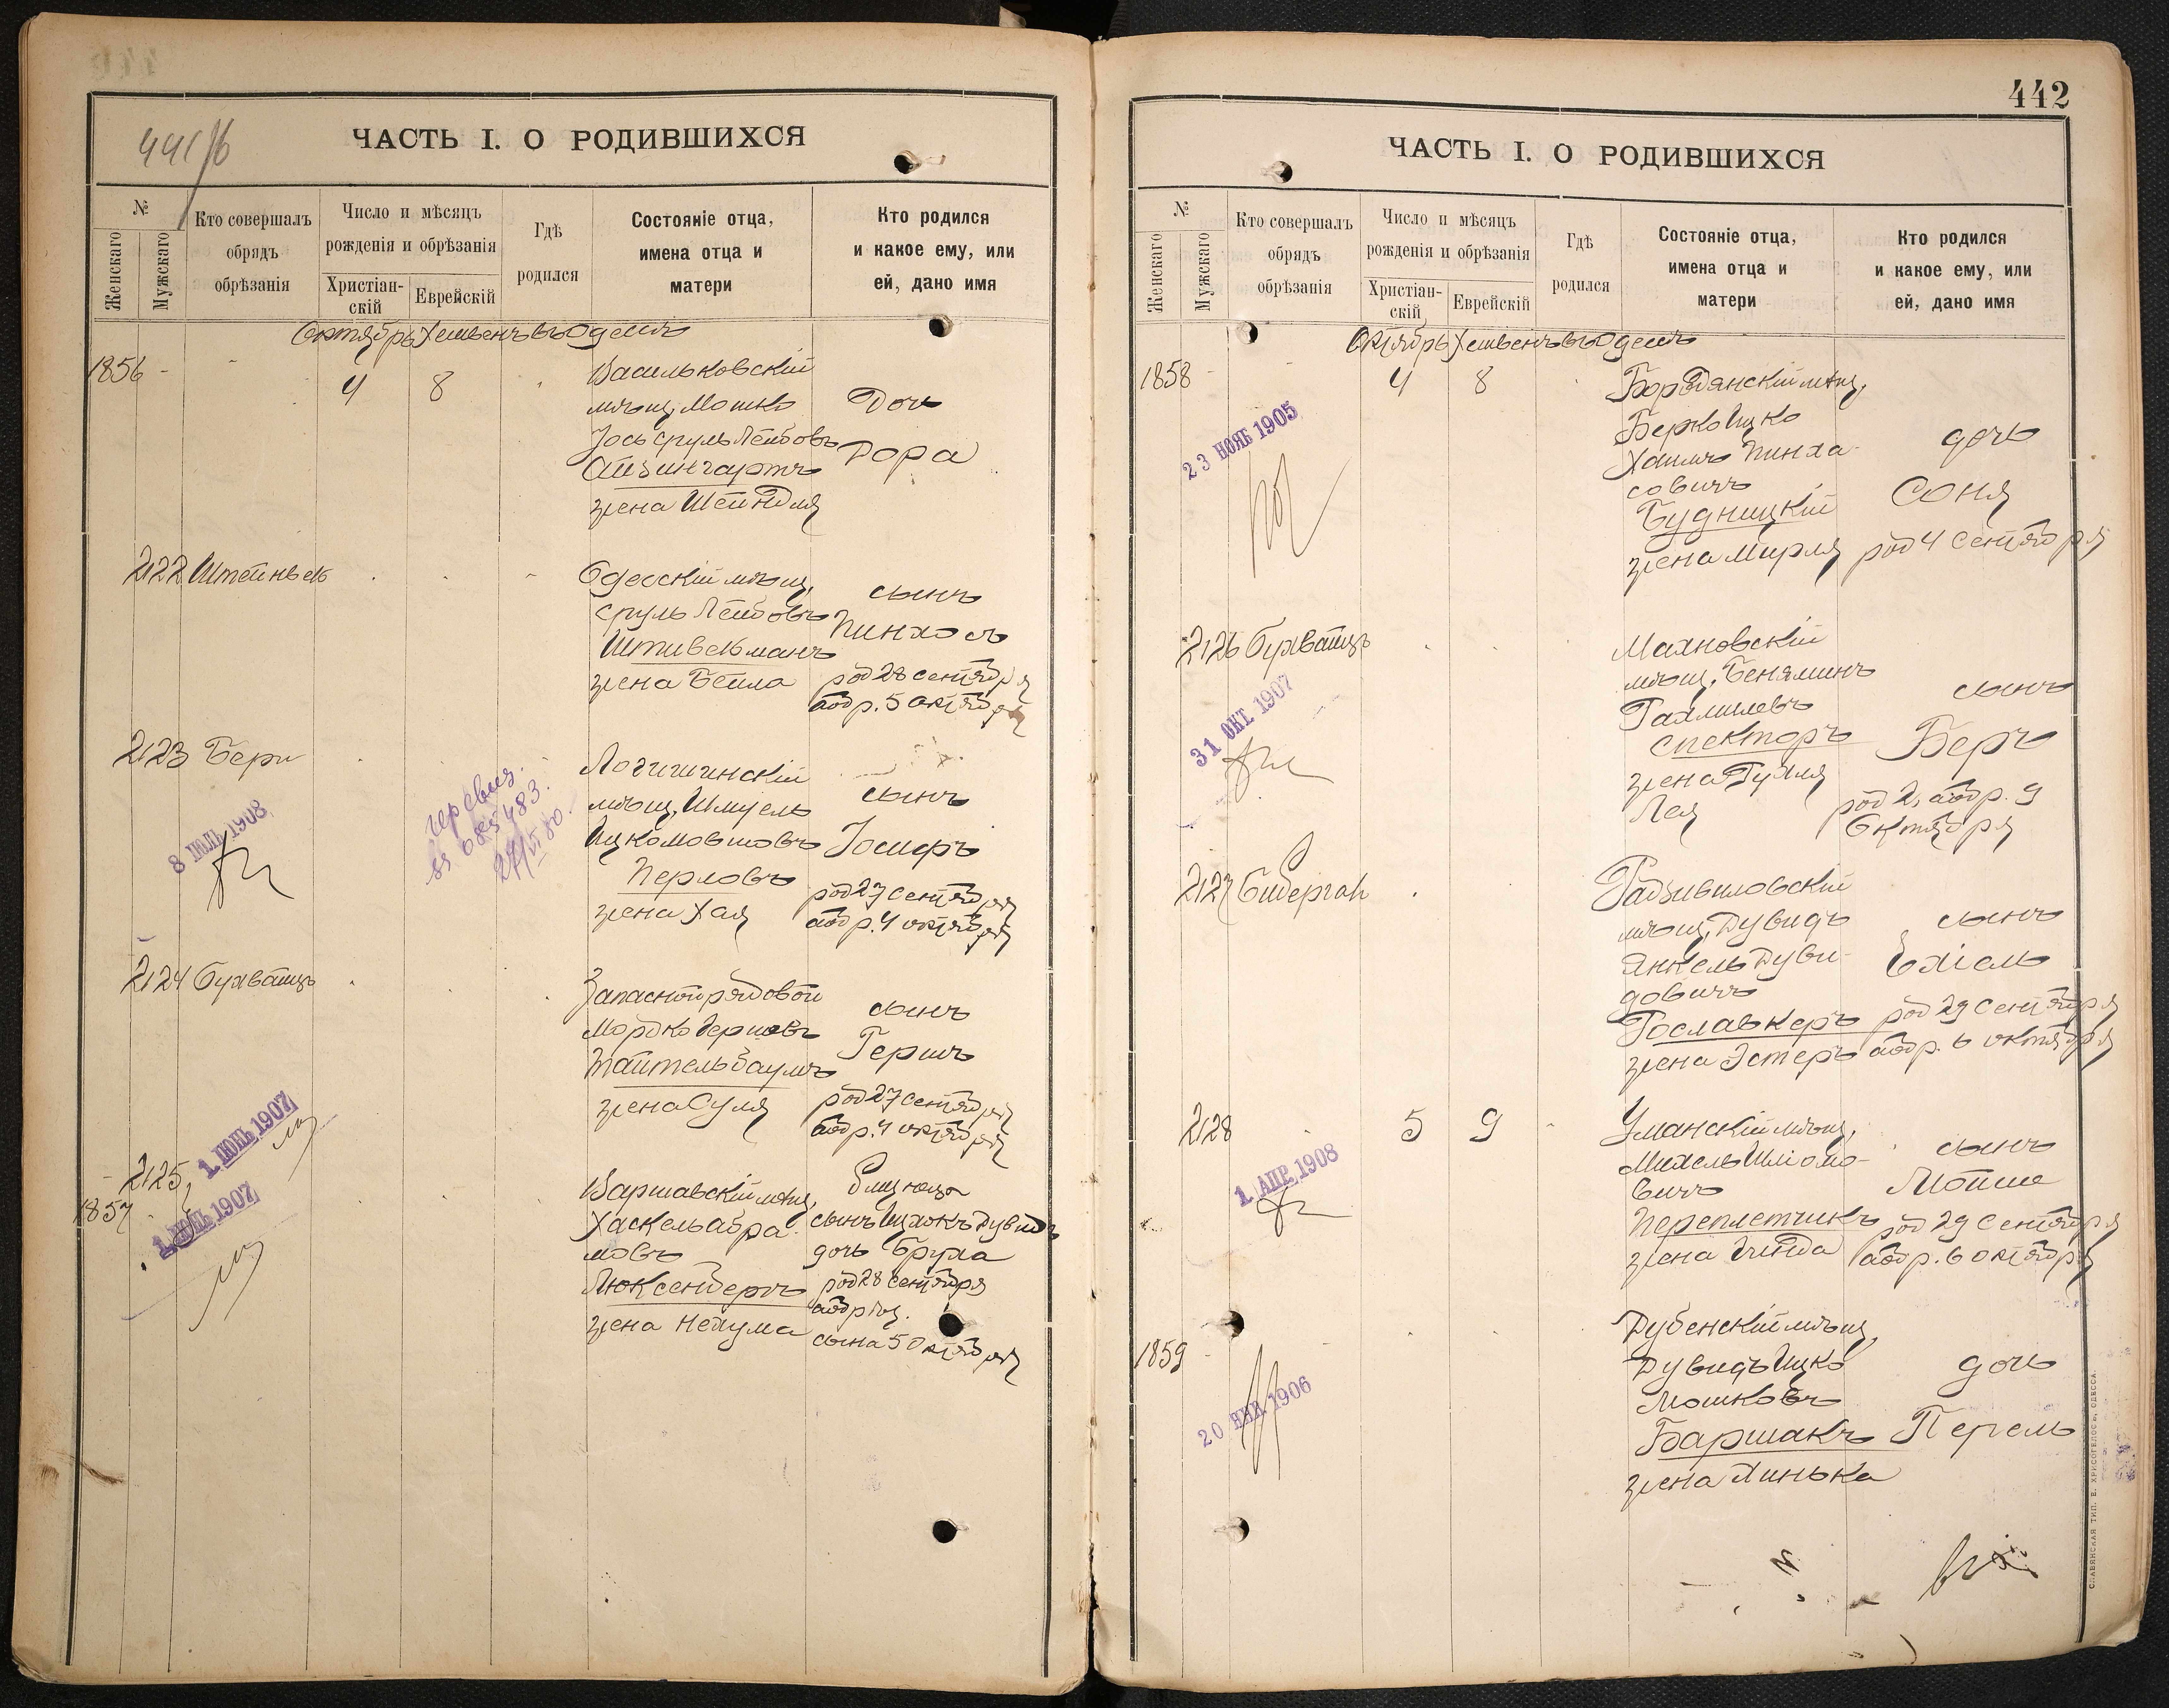 441/б
ЧАСТЬ I. О РОДИВШИХСЯ
№
Женскаго
Мужскаго
Кто совершалъ
обрядъ
обрѣзанія
Число и мѣсяцъ
рожденія и обрѣзанія
Христіан-
скій
Еврейскій
Гдѣ
родился
Состояніе отца,
имена отца и
матери
Кто родился
и какое ему, или
ей, дано имя
Октябрь Хешвенъ въ Одессѣ
1856 - - 4 8
Васильковскій
мѣщ. Мошко
Іось Сруль Лейбовъ
Айзингартъ
жена Шейндля
Дочь
Дора
2122 Штейнвель
Одесскій мѣщ.
Сруль Лейбовъ
Штивельманъ
жена Бейла
сынъ
Пинхосъ
род 28 сентября
обр. 5 октября
2123 Бери
8 ІЮЛЬ 1908
685483
Логишинскій
мѣщ. Шмуель
Ицкомовшовъ
Перловъ
жена Хая
сынъ
Іосифъ
род 27 сентября
обр. 4 октября
2124 Бухбайтъ
Запасной рядовой
Мордко Гершовъ
Тайтельбаумъ
жена Суля
сынъ
Гершъ
род 27 сентября
обр. 4 октября
1 ІЮНЬ 1907
2125
1857
1 ІЮНЬ 1907
Варшавскій мѣщ.
Хаскель Абра-
мовъ
Люксенбергъ
жена Нехума
Близнецы
сынъ Ицхокъ Дувидъ
дочь Бруха
род 28 сентября
сына 5 октября
442
ЧАСТЬ I. О РОДИВШИХСЯ
№
Женскаго
Мужскаго
Кто совершалъ
обрядъ
обрѣзанія
Число и мѣсяцъ
рожденія и обрѣзанія
Христіан-
скій
Еврейскій
Гдѣ
родился
Состояніе отца,
имена отца и
матери
Кто родился
и какое ему, или
ей, дано имя
Октябрь Хешвенъ въ Одессѣ
1858 - - 4 8
23 НОЯБ 1905
Бородянскій мѣщ.
Берко Ицко
Хаимъ Пинха-
совичъ
Будницкій
жена Мирля
дочь
Соня
род 4 сентября
2126 Бухбайтъ
31 ОКТ. 1907
Маяновскій
мѣщ. Беняминъ
Рахмилевъ
Спекторъ
жена Рухля
Лея
сынъ
Беръ
род 2, обр. 9
октября
2127
Радзивиловскій
мѣщ. Дувидъ
Янкель Дуви-
довичъ
Гославкеръ
жена Эстеръ
сынъ
Ехіель
род 29 сентября
обр. 6 октября
2128 5 9
1 АПР. 1908
Уманскій мѣщ.
Михель Шліомо-
вичъ
Переплетчикъ
жена Гинда
сынъ
Мойше
род 29 сентября
обр. 6 октября
1859 -
20 ЯНВ. 1906
Дубенскій мѣщ.
Дувидъ Ицко
Мошковъ
Баршакъ
жена Хинька
дочь
Перель
СЛАВЯНСКАЯ ТИП. Е. ХРИСОГЕЛОСЪ, ОДЕССА.